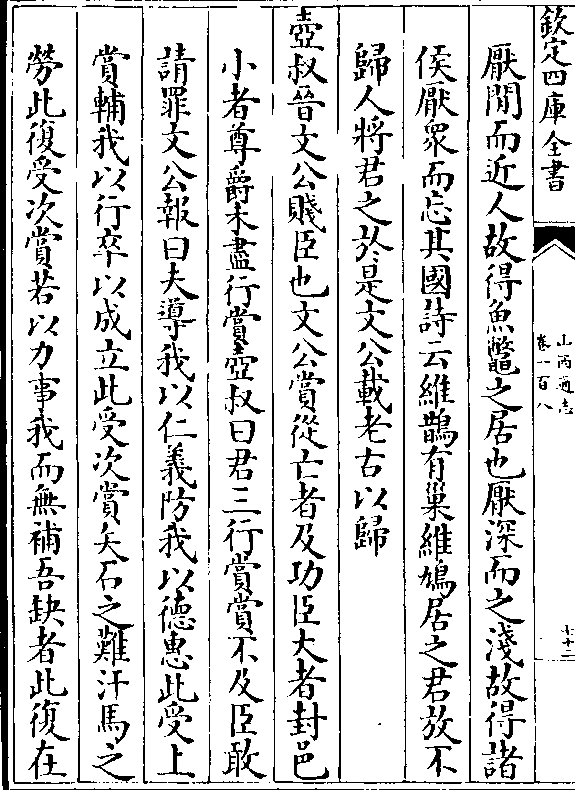 欽定四庫全書
山西通志
卷一百八
七十二
厭閒而近人故得魚鼈之居也厭深而之淺故得諸
侯厭衆而忘其國詩云維鵲有巢維鳩居之君放不
歸人將君之於是文公載老古以歸
壺叔晉文公賤臣也文公賞從亡者及功臣大者封邑
小者尊爵未盡行賞壺叔曰君三行賞賞不及臣敢
請罪文公報曰夫導我以仁義防我以德惠此受上
賞輔我以行卒以成立此受次賞矢石之難汗馬之
勞此復受次賞若以力事我而無補吾缺者此復在